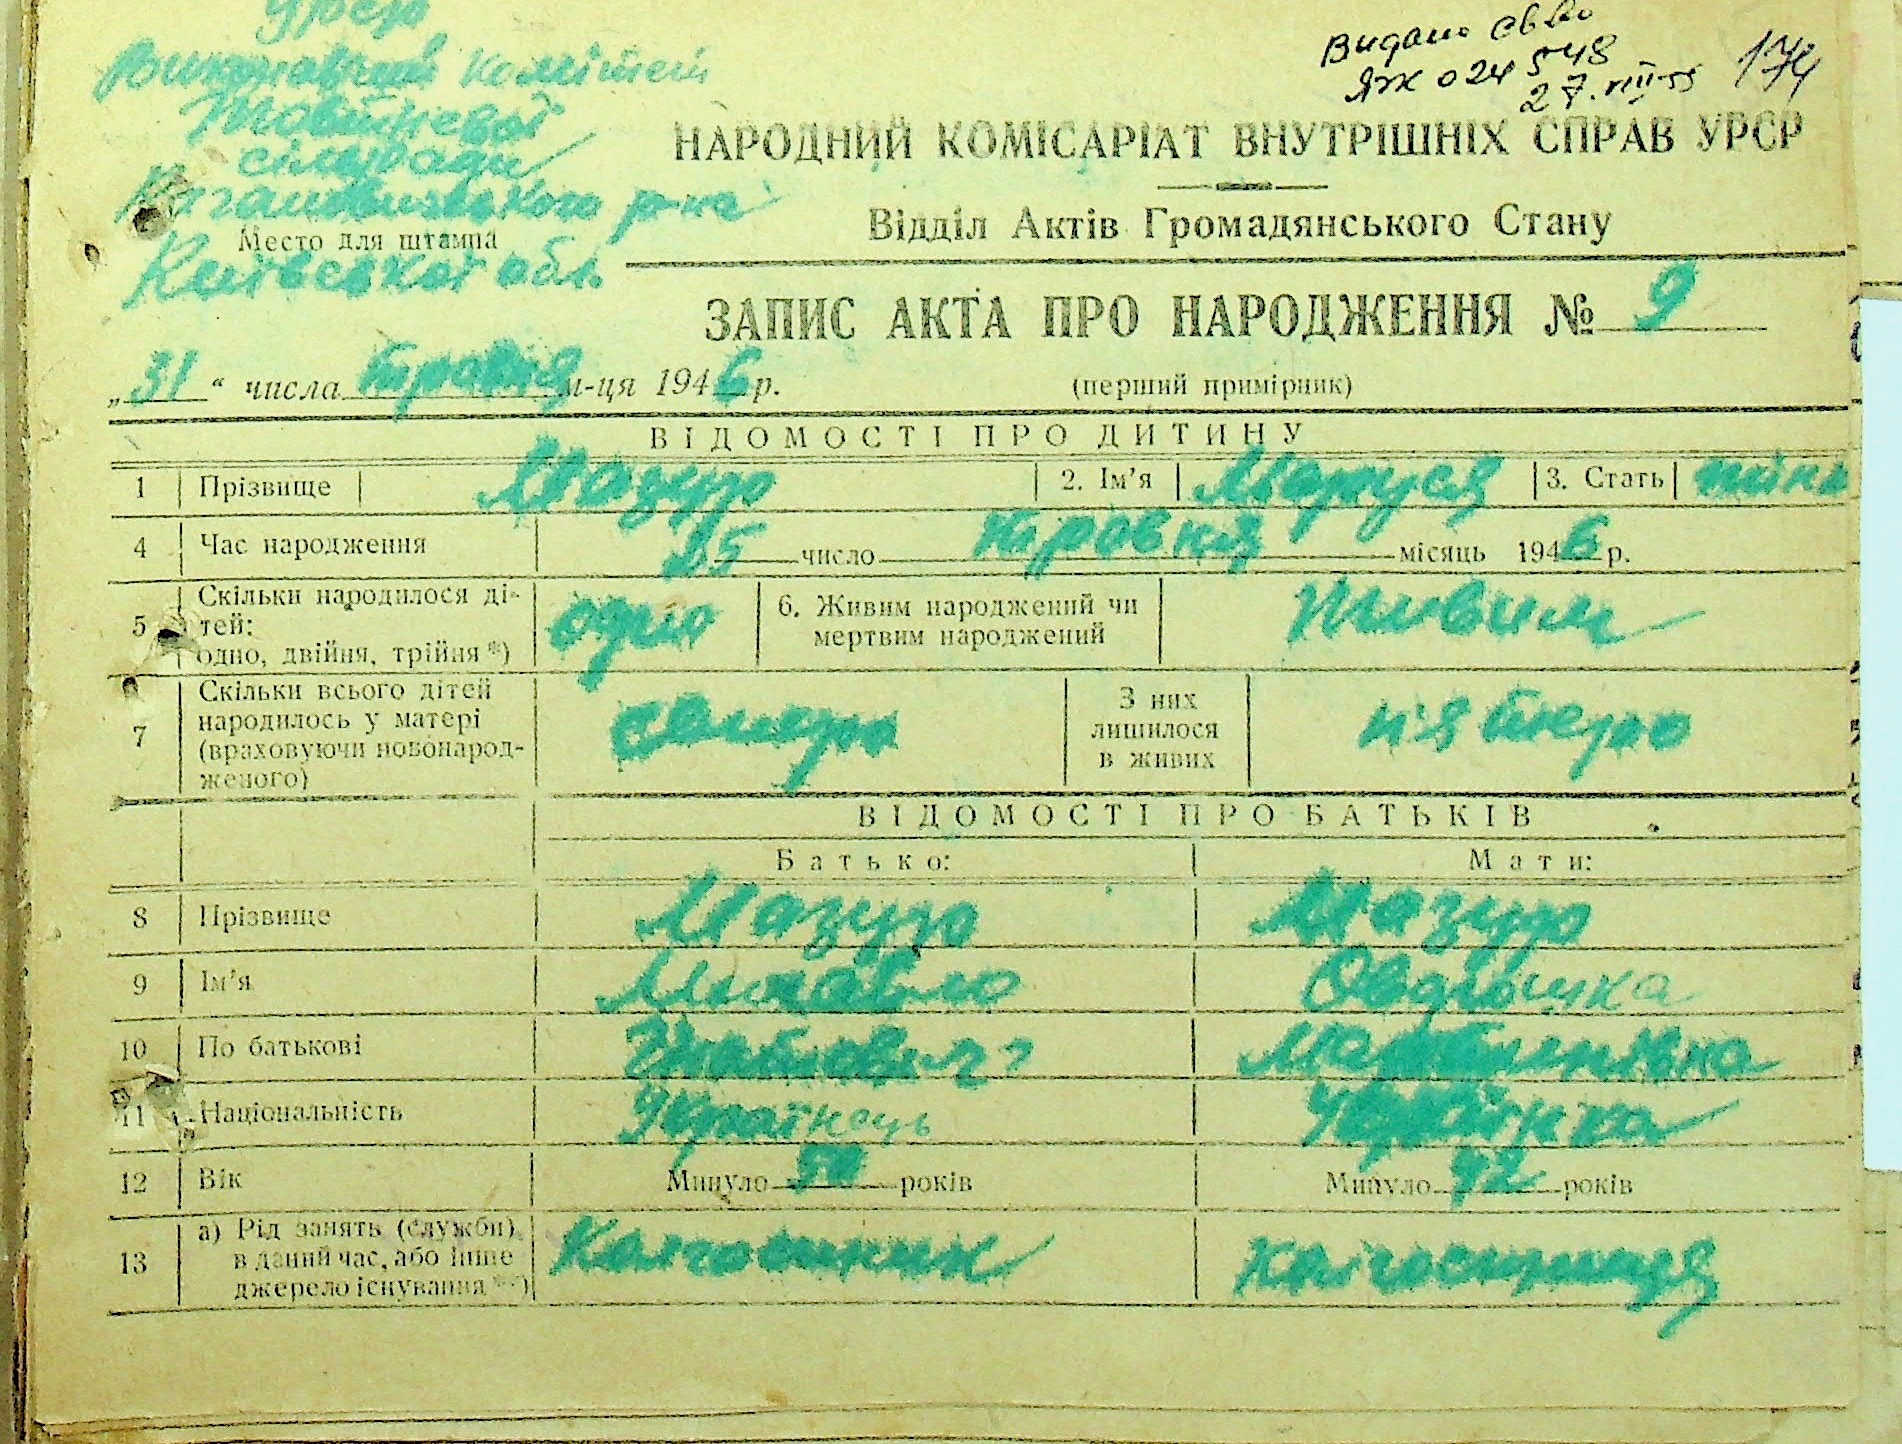 УРСР
Виконавчий комітет
Жовтневої
сільради
Кагановичського р-на
Место для штампа
Київської обл.
Видано св во
ЯЖ 024548
27.VIII-55
174
НАРОДНИЙ КОМІСАРІАТ ВНУТРІШНІХ СПРАВ УРСР
Відділ Актів Громадянського Стану
ЗАПИС АКТА ПРО НАРОДЖЕННЯ № 9
„31“ числа травня м-ця 1946 р. (перший примірник)
ВІДОМОСТІ ПРО ДИТИНУ
1 Прізвище Мазур 2. Ім'я Маруся 3. Стать жіно
4 Час народження 25 число травня місяць 1946 р.
5 Скільки народилося ді-
тей:
одно, двійня, трійня *) одно 6. Живим народжений чи
мертвим народжений Живим
7 Скільки всього дітей
народилось у матері
(враховуючи новонарод-
женого) семеро З них
лишилося
в живих п'ятеро
ВІДОМОСТІ ПРО БАТЬКІВ
Батько: Мати:
8 Прізвище Мазур Мазур
9 Ім'я Михайло
10 По батькові
11 Національність Українець Українка
12 Вік Минуло 50 років Минуло 42 років
13 а) Рід занять (служби)
в даний час, або інше
джерело існування **) Колгоспник Колгоспниця